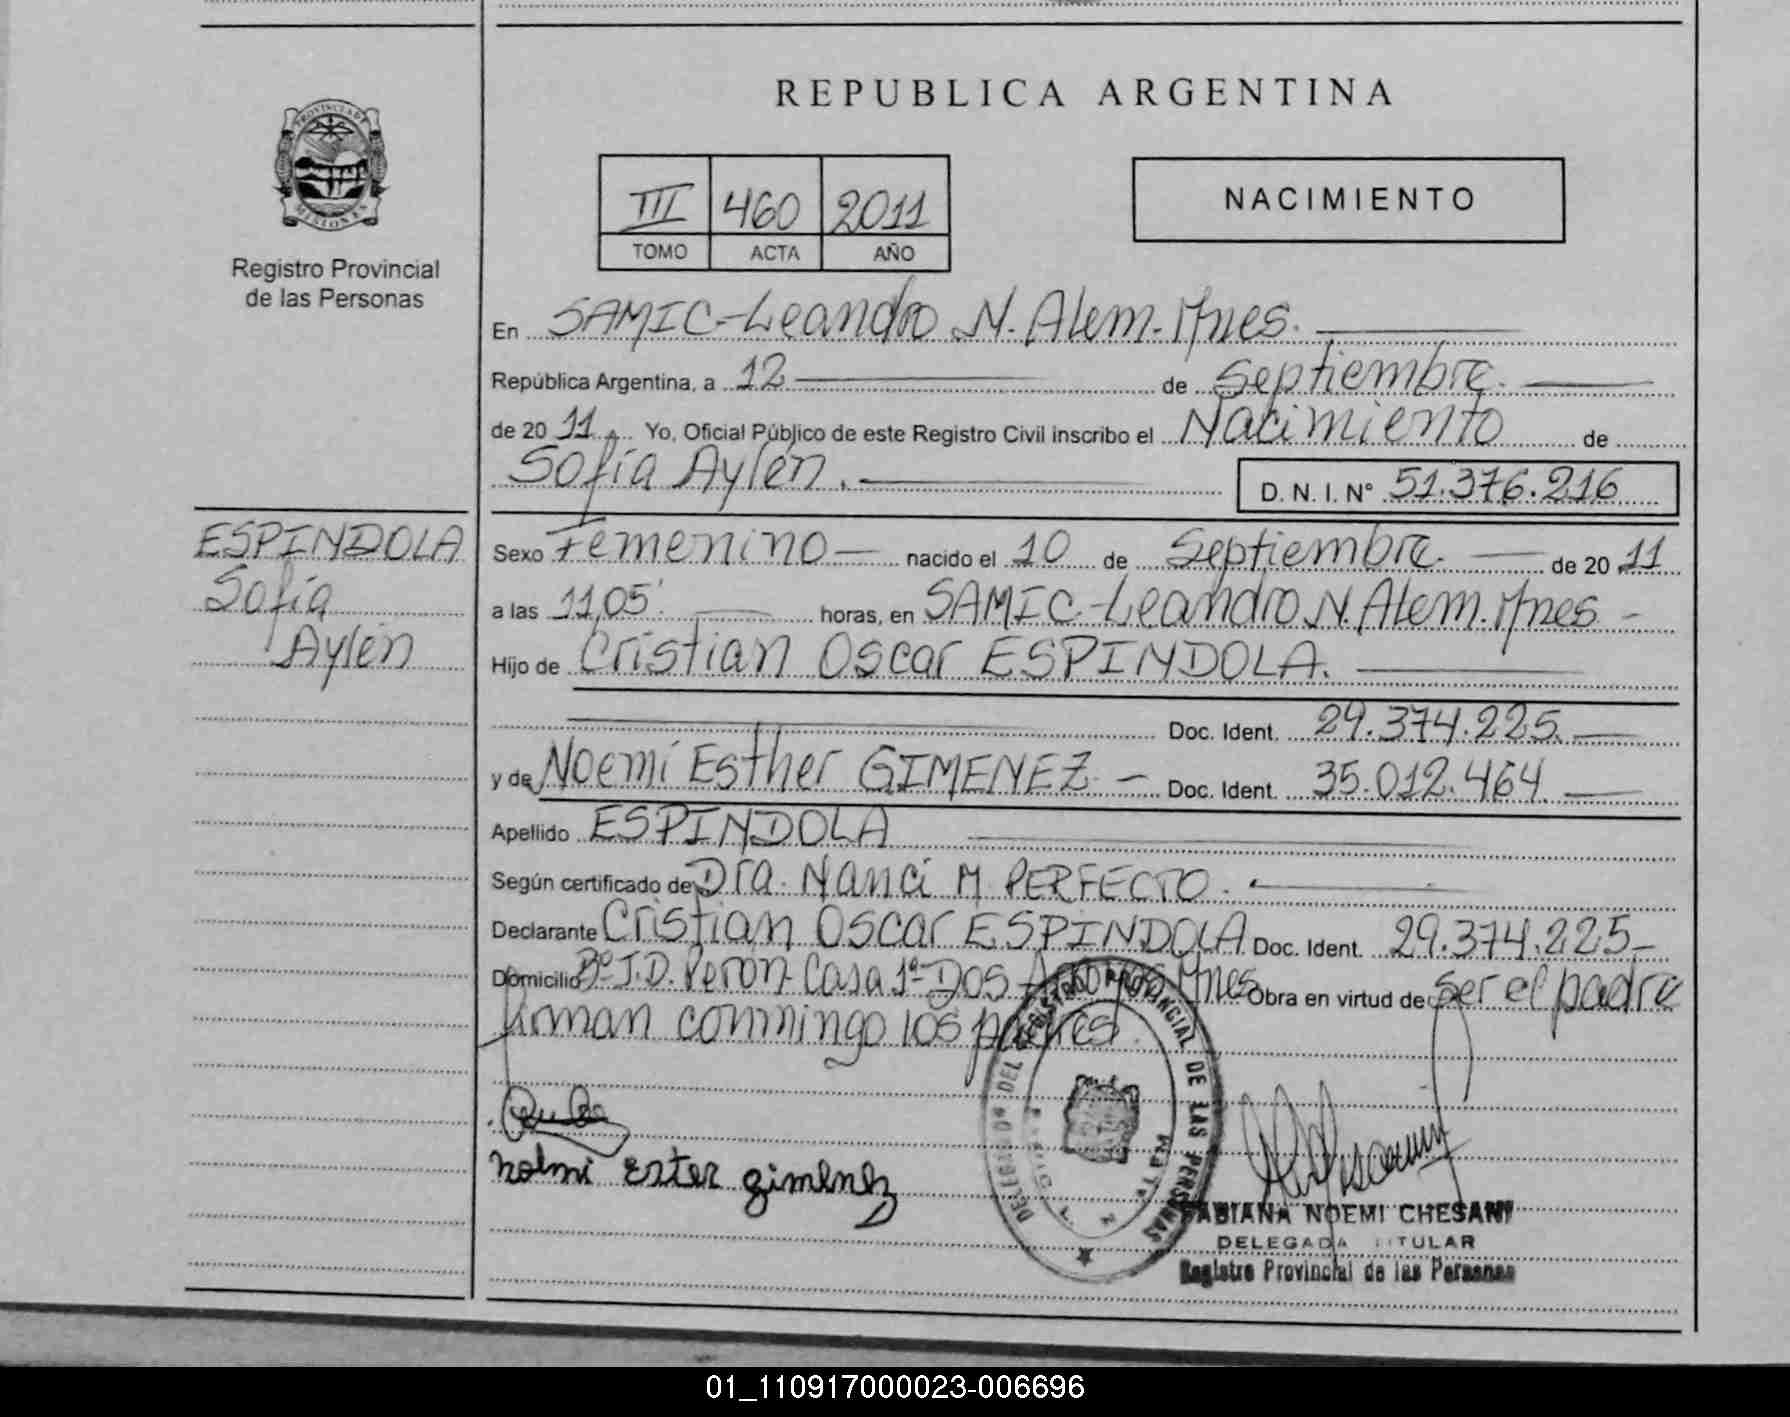 REPUBLICA ARGENTINA
PROVINCIA DE
MISIONES
Registro Provincial
de las Personas
III 460 2011
TOMO ACTA AÑO
NACIMIENTO
En SAMIC-Leandro N. Alem. Mnes.
República Argentina, a 12 de Septiembre.
de 20 11. Yo, Oficial Público de este Registro Civil inscribo el Nacimiento de
Sofía Aylén. D. N. I. N° 51.376.216
ESPINDOLA
Sofía
Aylén
Sexo Femenino nacido el 10 de Septiembre. de 20 11
a las 11,05'. horas, en SAMIC-Leandro N. Alem. Mnes
Hijo de Cristian Oscar ESPINDOLA.
Doc. Ident. 29.374.225.
y de Noemí Esther GIMENEZ Doc. Ident. 35.012.464
Apellido ESPINDOLA
Según certificado de Dra. Nanci M. PERFECTO.
Declarante Cristian Oscar ESPINDOLA Doc. Ident. 29.374.225
Domicilio Bº J.D. Perón Casa 1º Dos Arroyos Mnes Obra en virtud de ser el padre
firman conmingo los padres.
DELEGADA DEL REGISTRO PROVINCIAL DE LAS PERSONAS
noemi Ester gimenez
FABIANA NOEMI CHESANI
DELEGADA TITULAR
Registro Provincial de las Personas
01_110917000023-006696